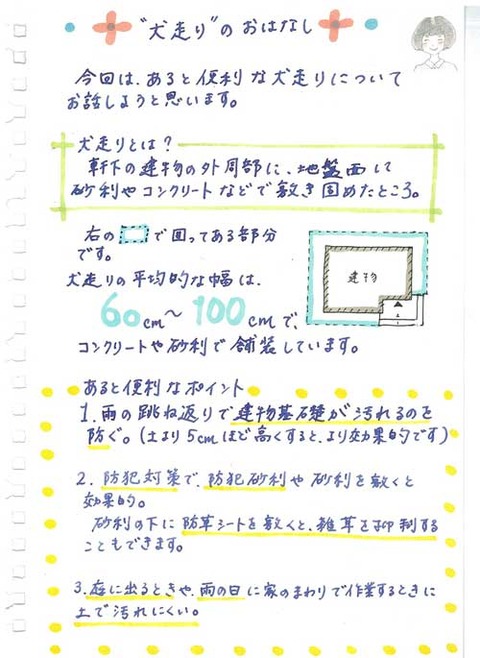 "犬走り"の おはなし
今回は、あると便利な犬走りについて
お話しようと思います。
犬走りとは？
軒下の建物の外周部に、地盤面して
砂利やコンクリートなどで敷き固めたところ。
右の で囲ってある部分
です。
犬走りの平均的な幅は、
60cm〜100cmで、
コンクリートや砂利で舗装しています。
建物
あると便利なポイント
1.雨の跳ね返りで建物基礎が汚れるのを
防ぐ。(土より5cmほど高くすると、より効果的です)
2.防犯対策で、防犯砂利や砂利を敷くと
効果的。
砂利の下に防草シートを敷くと、雑草を抑制する
こともできます。
3.庭に出るときや、雨の日に家のまわりで作業するときに
土で汚れにくい。